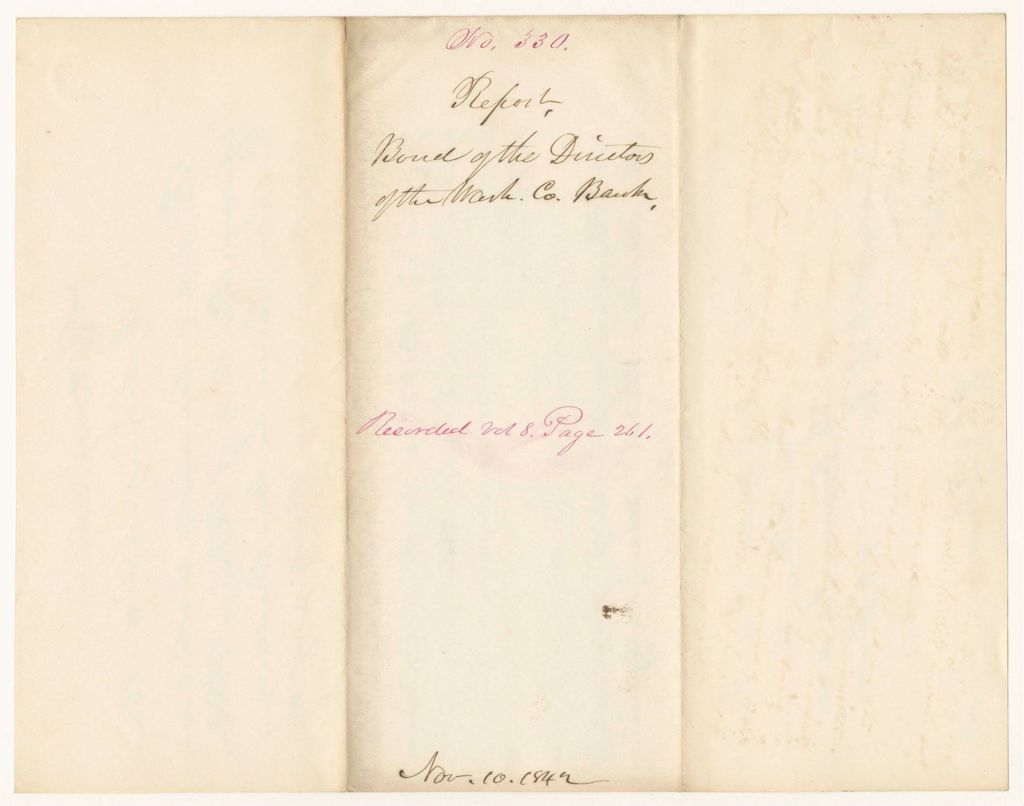 No. 330.
Report,
Bond of the Directors
of the Wash. Co. Bank,
Recorded vol 8. Page 261.
Nov. 10. 1842